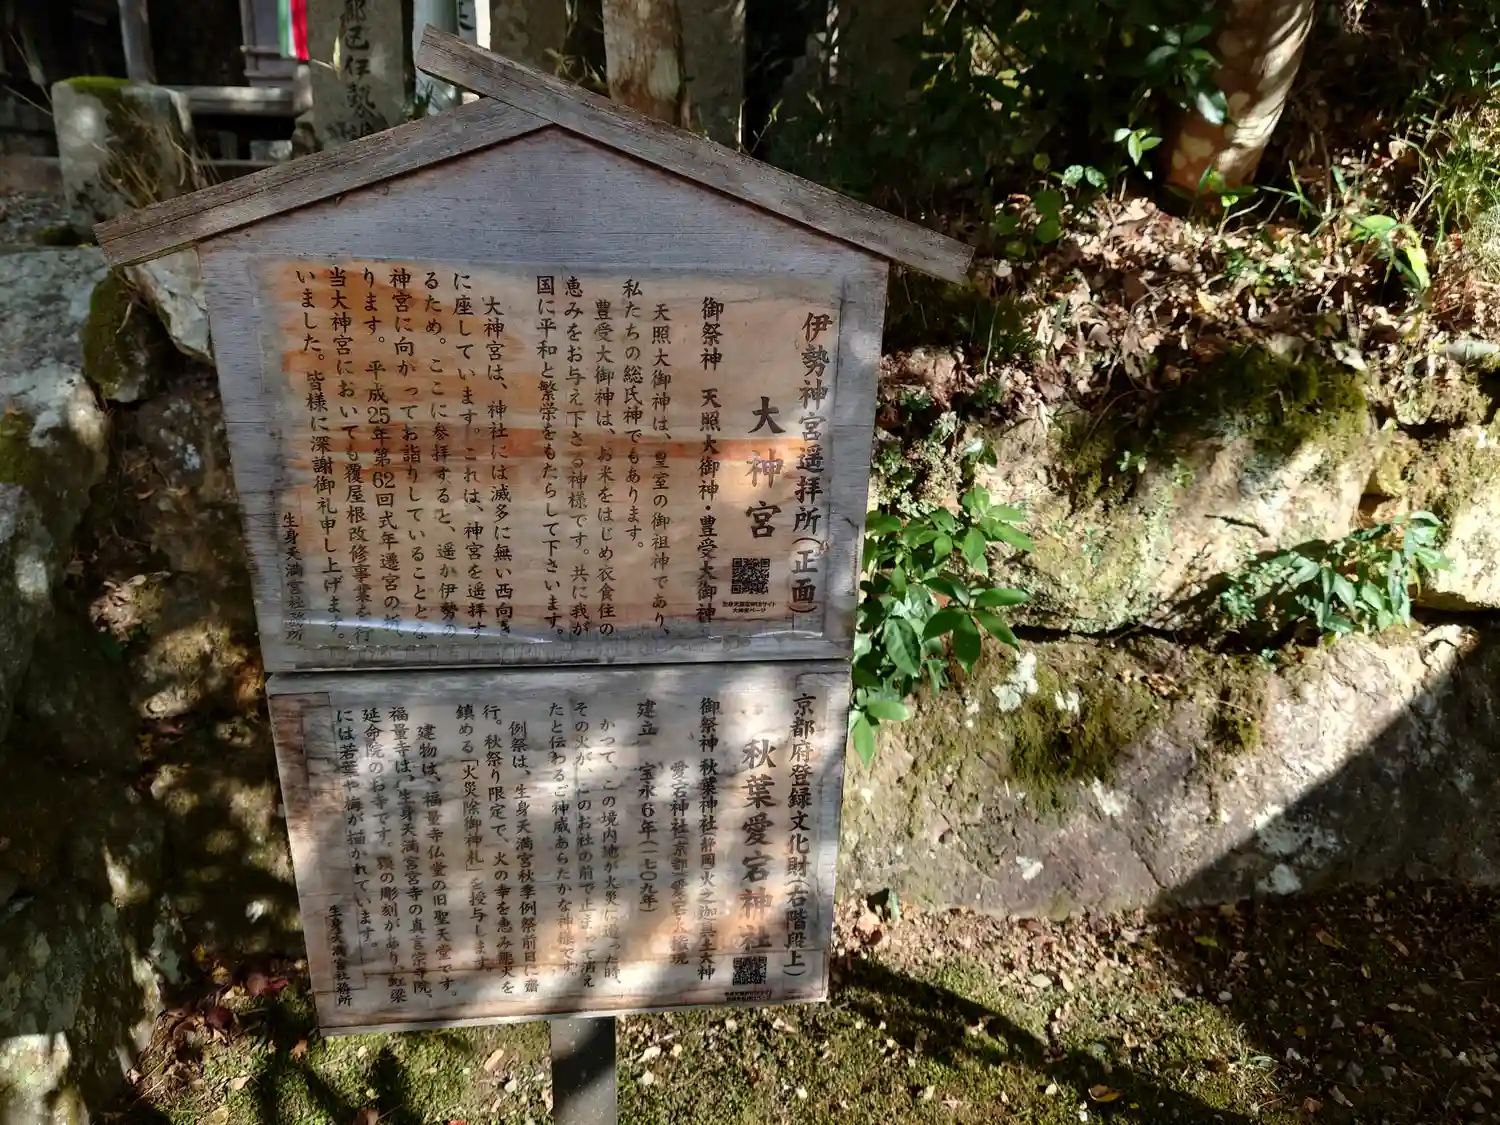 伊勢神宮遥拝所(正面)
大神宮
御祭神 天照大御神・豊受大御神
天照大御神は、皇室の御祖神であり、
私たちの総氏神でもあります。
豊受大御神は、お米をはじめ衣食住の
恵みをお与え下さる神様です。共に我が
国に平和と繁栄をもたらして下さいます。
大神宮は、神社には滅多に無い西向き
に座しています。これは、神宮を遥拝す
るため。ここに参拝すると、遥か伊勢の
神宮に向かってお詣りしていることとな
ります。平成25年第62回式年遷宮の折、
当大神宮においても覆屋根改修事業を行
いました。皆様に深謝御礼申し上げます。
生身天満宮社務所
京都府登録文化財(右階段上)
秋葉愛宕神社
御祭神 秋葉神社(静岡)火之迦具土大神
愛宕神社(京都)愛宕大権現
建立 宝永6年(一七〇九年)
かつて、この境内地が火災に遭った時、
その火が、このお社の前で止まって消え
たと伝わるご神威あらたかな神様です。
例祭は、生身天満宮秋季例祭前日に斎
行。秋祭り限定で、火の幸を恵み悪火を
鎮める「火災除御神札」を授与します。
建物は、福量寺仏堂の旧聖天堂です。
福量寺は、生身天満宮宮寺の真言宗寺院、
延命院のお寺です。龍の彫刻があり、虹梁
には若葉や梅が描かれています。
生身天満宮社務所
郎 己 伊勢